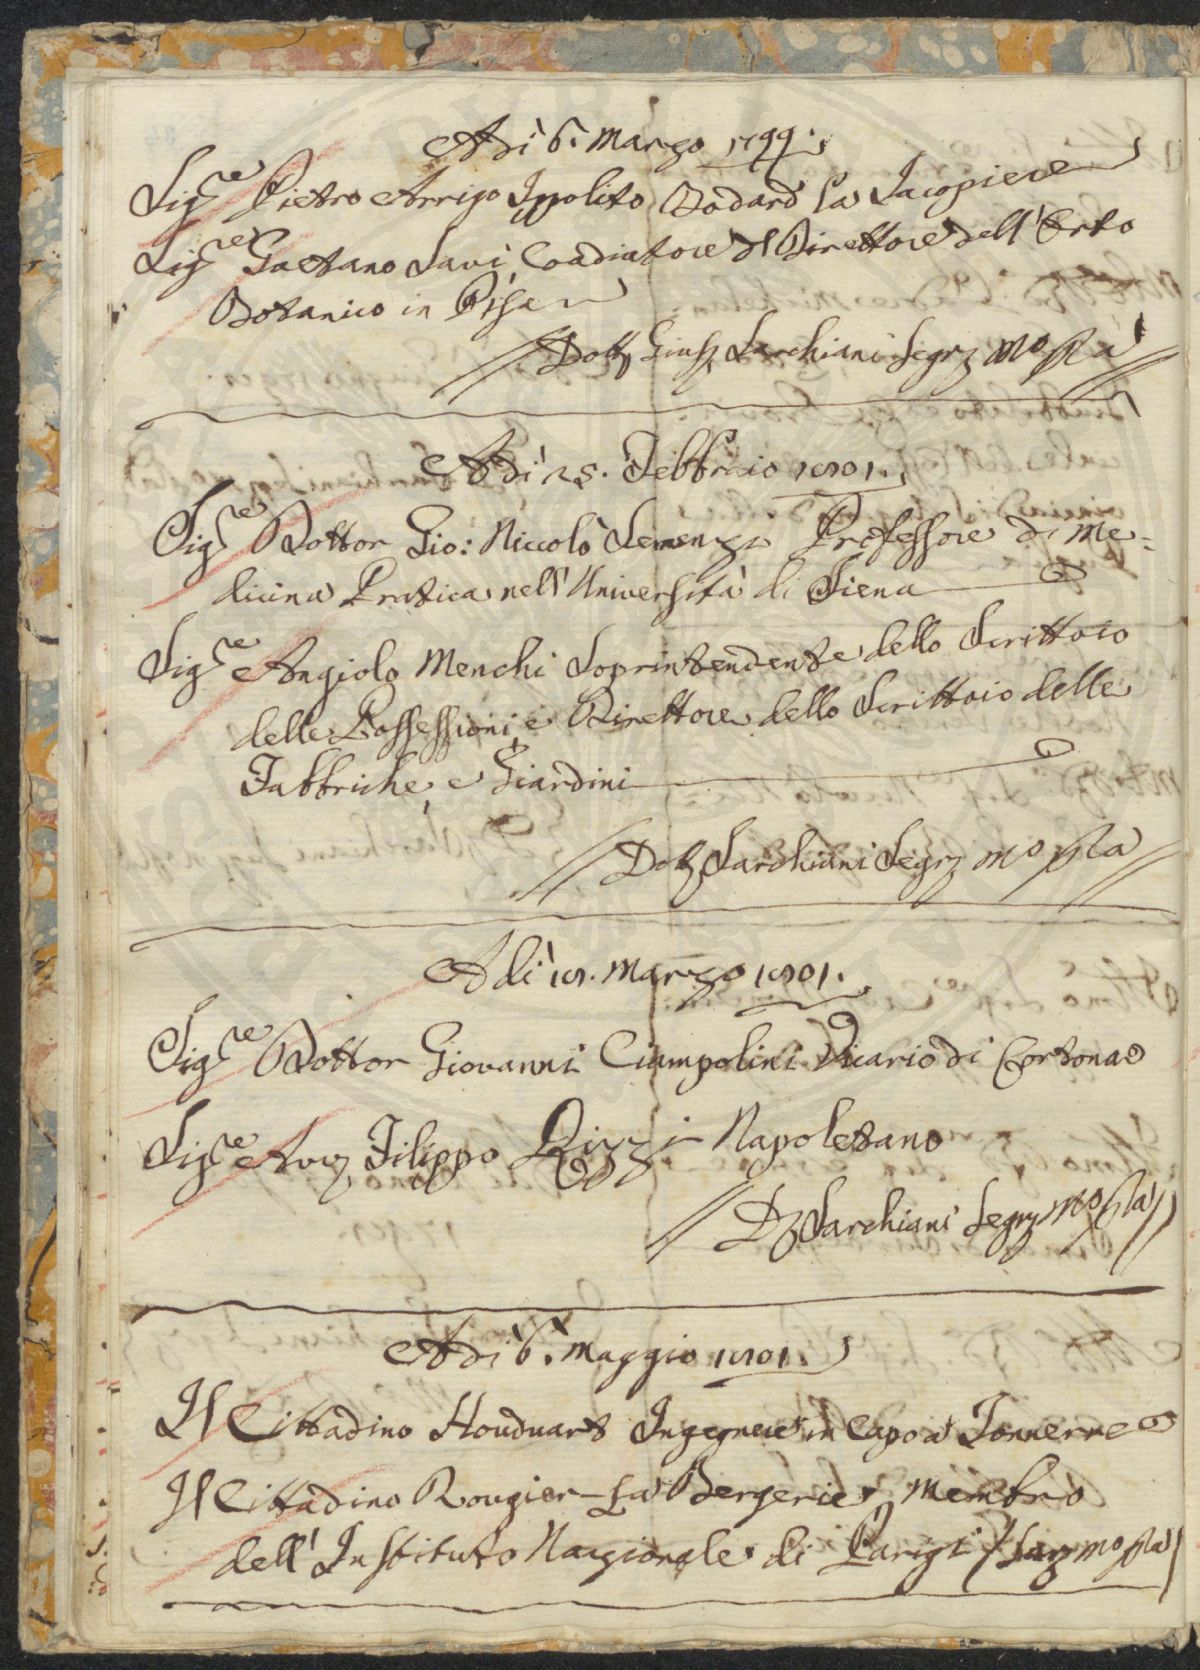 Adì 6. Marzo 1799.
Sig.re Pietro Arrigo Ippolito Bodard la Jacopiere
Sig.re Gaetano Savi Coadiutore del Direttore dell'Orto
Botanico in Pisa
Dott. Gius. Sarchiani Segr. mo pla
Adì 25. Febbraio 1801.
Sig.re Dottor Gio: Niccolò Semenzi Professore di Me=
dicina Pratica nell'Università di Siena
Sig.re Angiolo Menchi Soprintendente dello Scrittoio
delle Possessioni, e Direttore dello Scrittoio delle
Fabbriche, e Giardini
Dott. Sarchiani Segr. mo pla
Adì 18. Marzo 1801.
Sig.re Dottor Giovanni Ciampolini Vicario di Cortona
Sig.re Avv. Filippo Rizzi Napoletano
D. Sarchiani Segr. mo pla
Adì 6. Maggio 1801.
Il Cittadino Houduart Ingegnere in Capo a Tonnerre
Il Cittadino Rougier-La Bergerie, Membro
dell'Instituto Nazionale di Parigi / mo pla